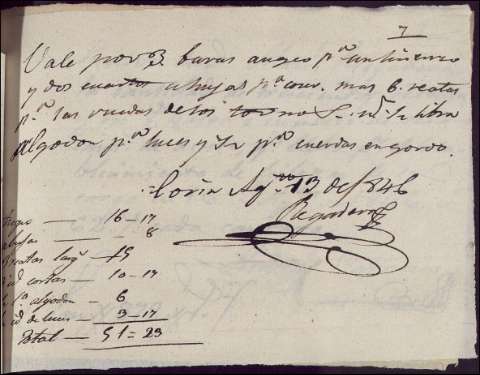 7
Vale por 3. baras angeo p.ª un lienzo
y dos cuartos abujas p.ª cour. mas 6. reatas
p.ª las ruedas de los tornos
libra
Algodon p.ª luces y p.ª cuerdas en gordo.
Coria Ag.to 13 de 1846
Regadera
16-17
- 8
reatas larg.s 15
id cortas - 10-17
algodon - 6
id de luces - 3-17
Total - 51=23